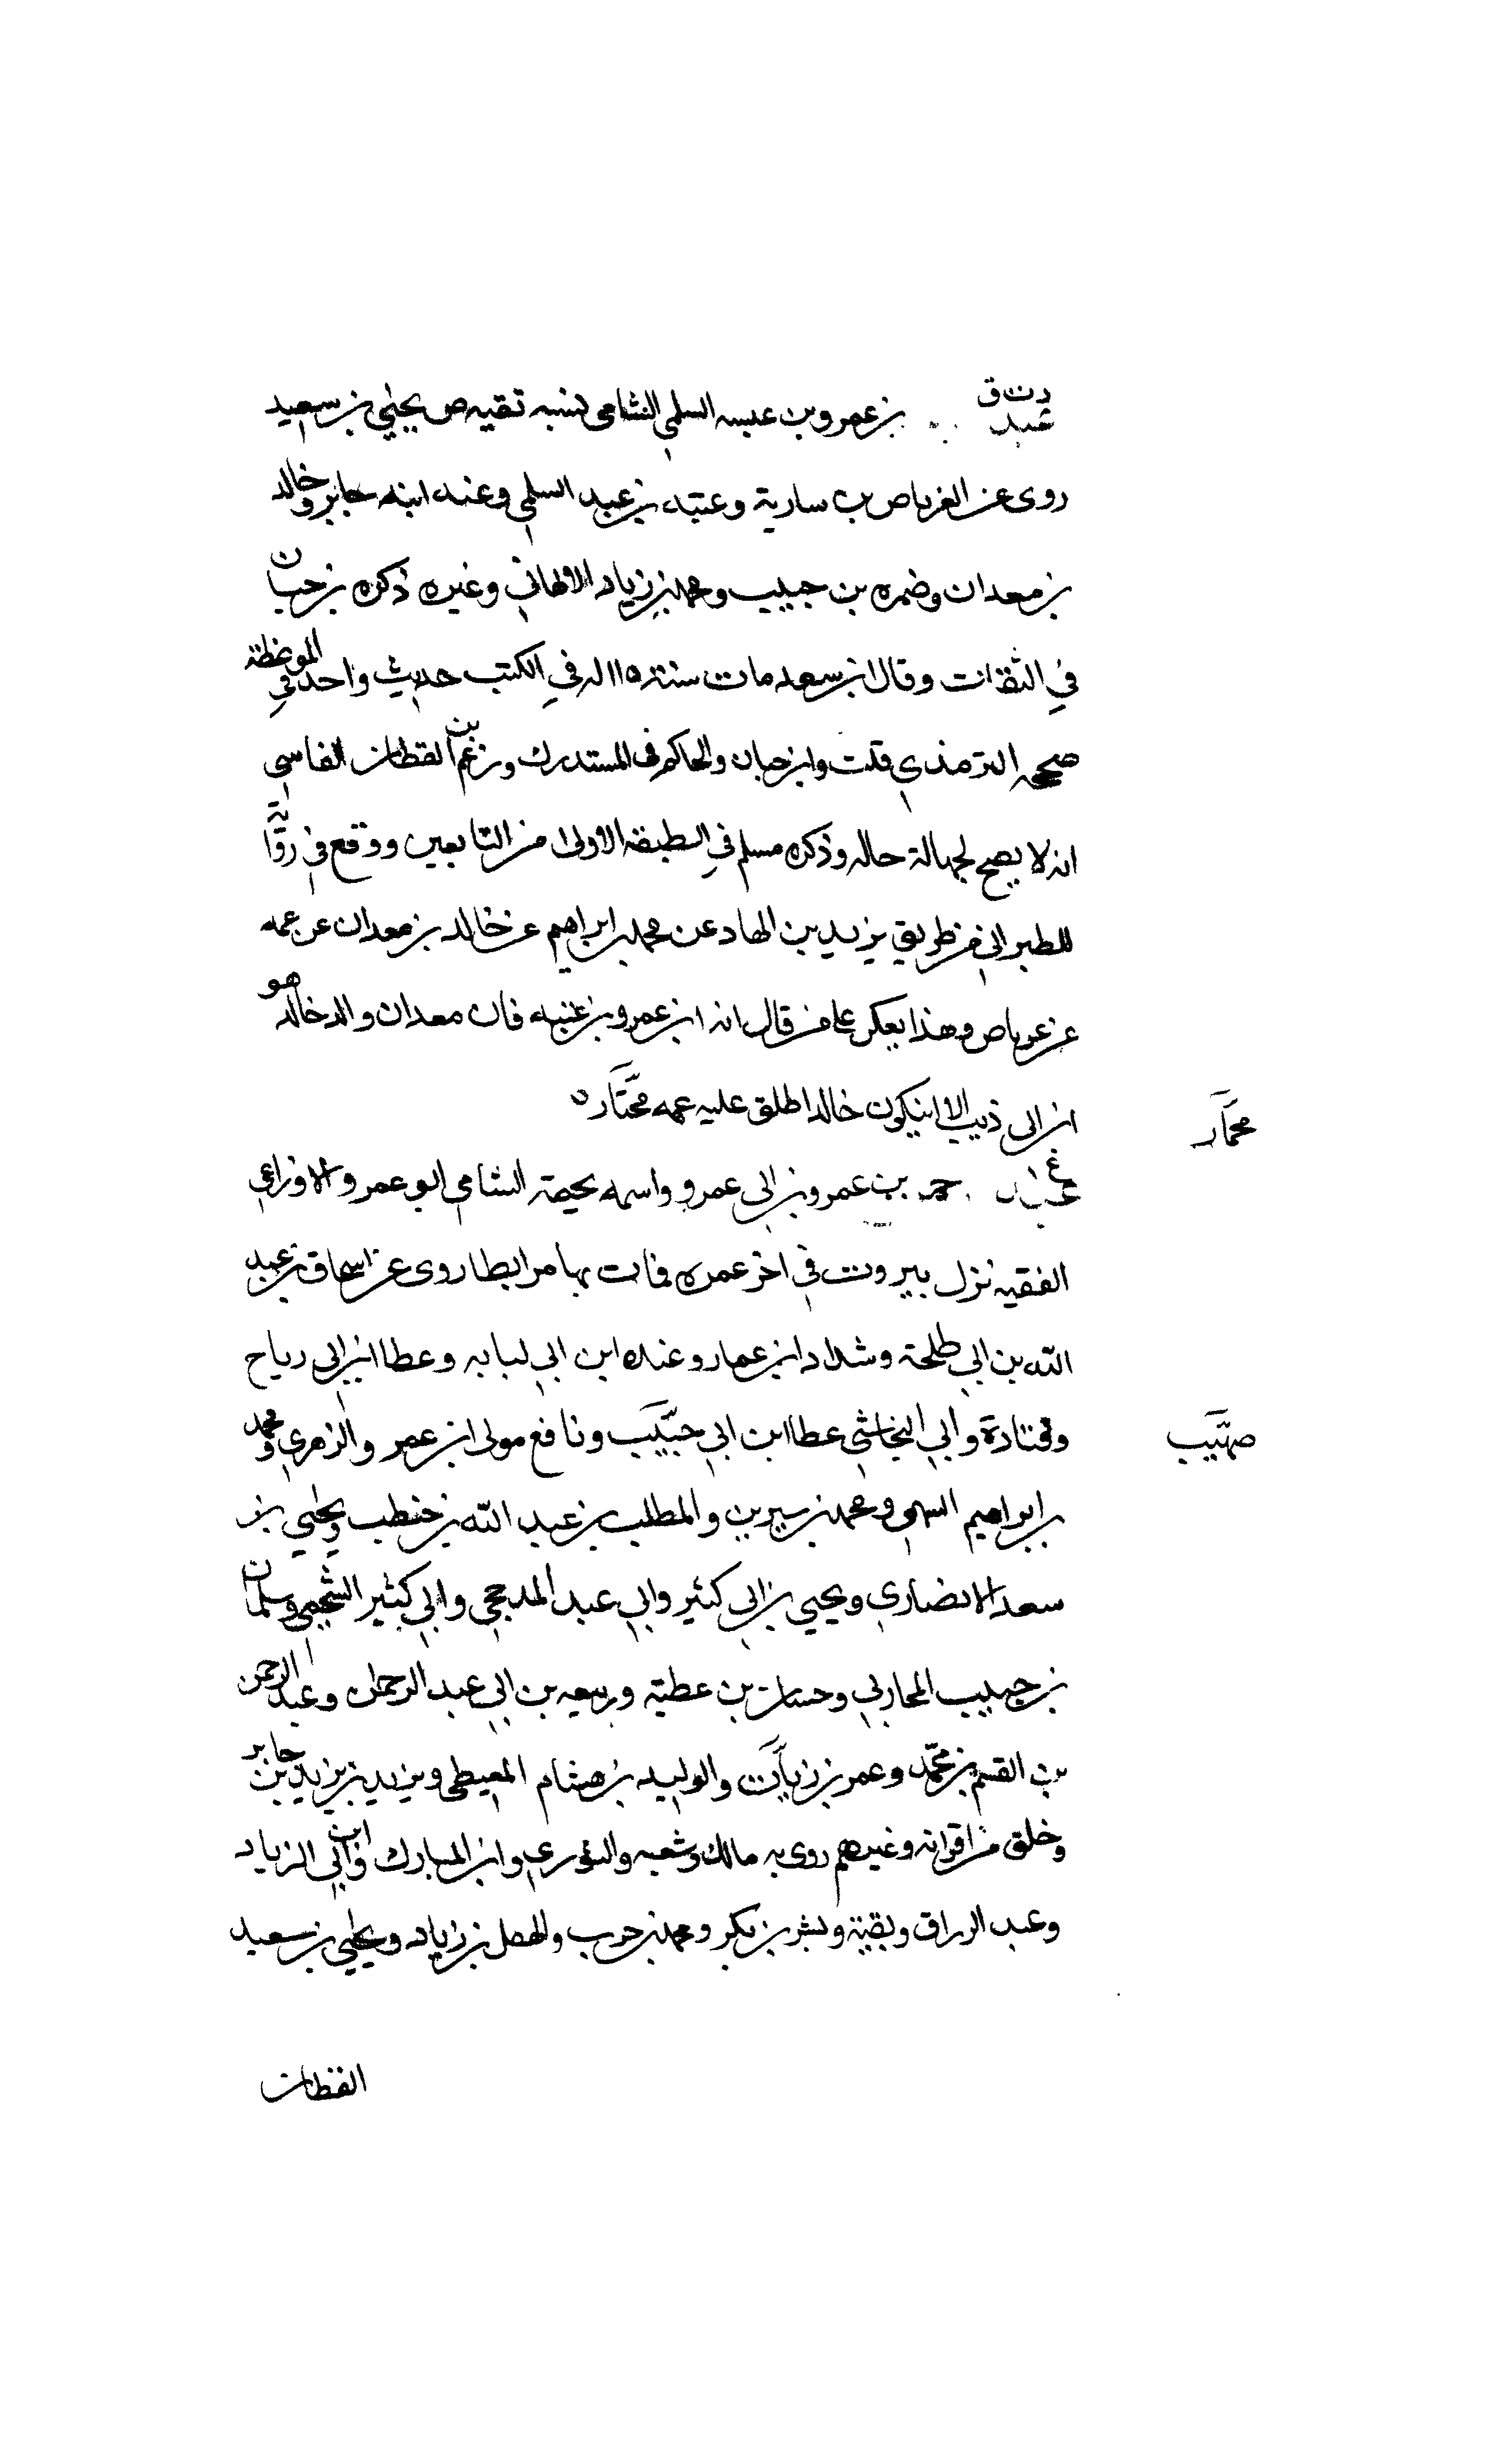 د ت ق
عبد بن عمرو بن عبسه السلمي الشامي نسبه بقيه ص يحيى بن سعيد
روى عن العرباص بن سارية وعتبه بن عبد السلمي وعنه ابنه جابر وخالد
بن معدان وضمره بن حبيب ومحمد بن زياد الالهاني وغيره ذكره بن حبان
في الثقات وقال ابن سعد مات سنة ١١٥ له في الكتب حديث واحد في الموعظة
صححه الترمذي قلت وابن حبان والحاكم في المستدرك وزعم بن القطان الفاسي
انه لا يصح لجهالة حاله وذكره مسلم في الطبقه الاولى من التابعين ووقع في رواية
للطبراني من طريق يزيد بن الهاد عن محمد بن ابراهيم عن خالد بن معدان عن عمه
عن عرباص وهذا يعكر على من قال انه ابن عمرو بن عنبسه فان معدان والد خالد هو
ابن ابي ذيب الا ان يكون خالد اطلق عليه عمه مختار
مختار
ع
عبد الرحمن بن عمرو بن ابي عمرو واسمه يحمد الشامي ابو عمرو الاوزاعي
الفقيه نزل بيروت في اخر عمره فمات بها مرابطا روى عن اسحاق بن عبد
الله بن ابي طلحة وشداد ابن عمار وعبده ابن ابي لبابه وعطا ابن ابي رباح
وقتادة وابي النجاشي عطا ابن ابي حبيب ونافع مولى ابن عمر والزهري ومحمد
صهيب
بن ابراهيم التيمي ومحمد بن سيرين والمطلب بن عبد الله بن حنطب ويحيى بن
سعد الانصاري ويحيى بن ابي كثير وابي عبد المدحجي وابي كثير السحيمي وسلمان
بن حبيب المحاربي وحسان بن عطية وربيعه بن ابي عبد الرحمان وعبد الرحمن
بن القسم بن محمد وعمر بن زيات والوليد بن هشام المعيطي ويزيد بن يزيد بن جابر
وخلق من اقرانه وغيرهم روى به مالك وشعبه والثوري وابن المبارك وابن ابي الزياد
وعبد الرزاق وبقية وبشر بن بكر ومحمد بن حرب والهقل بن زياد ويحيى بن سعيد
القطان